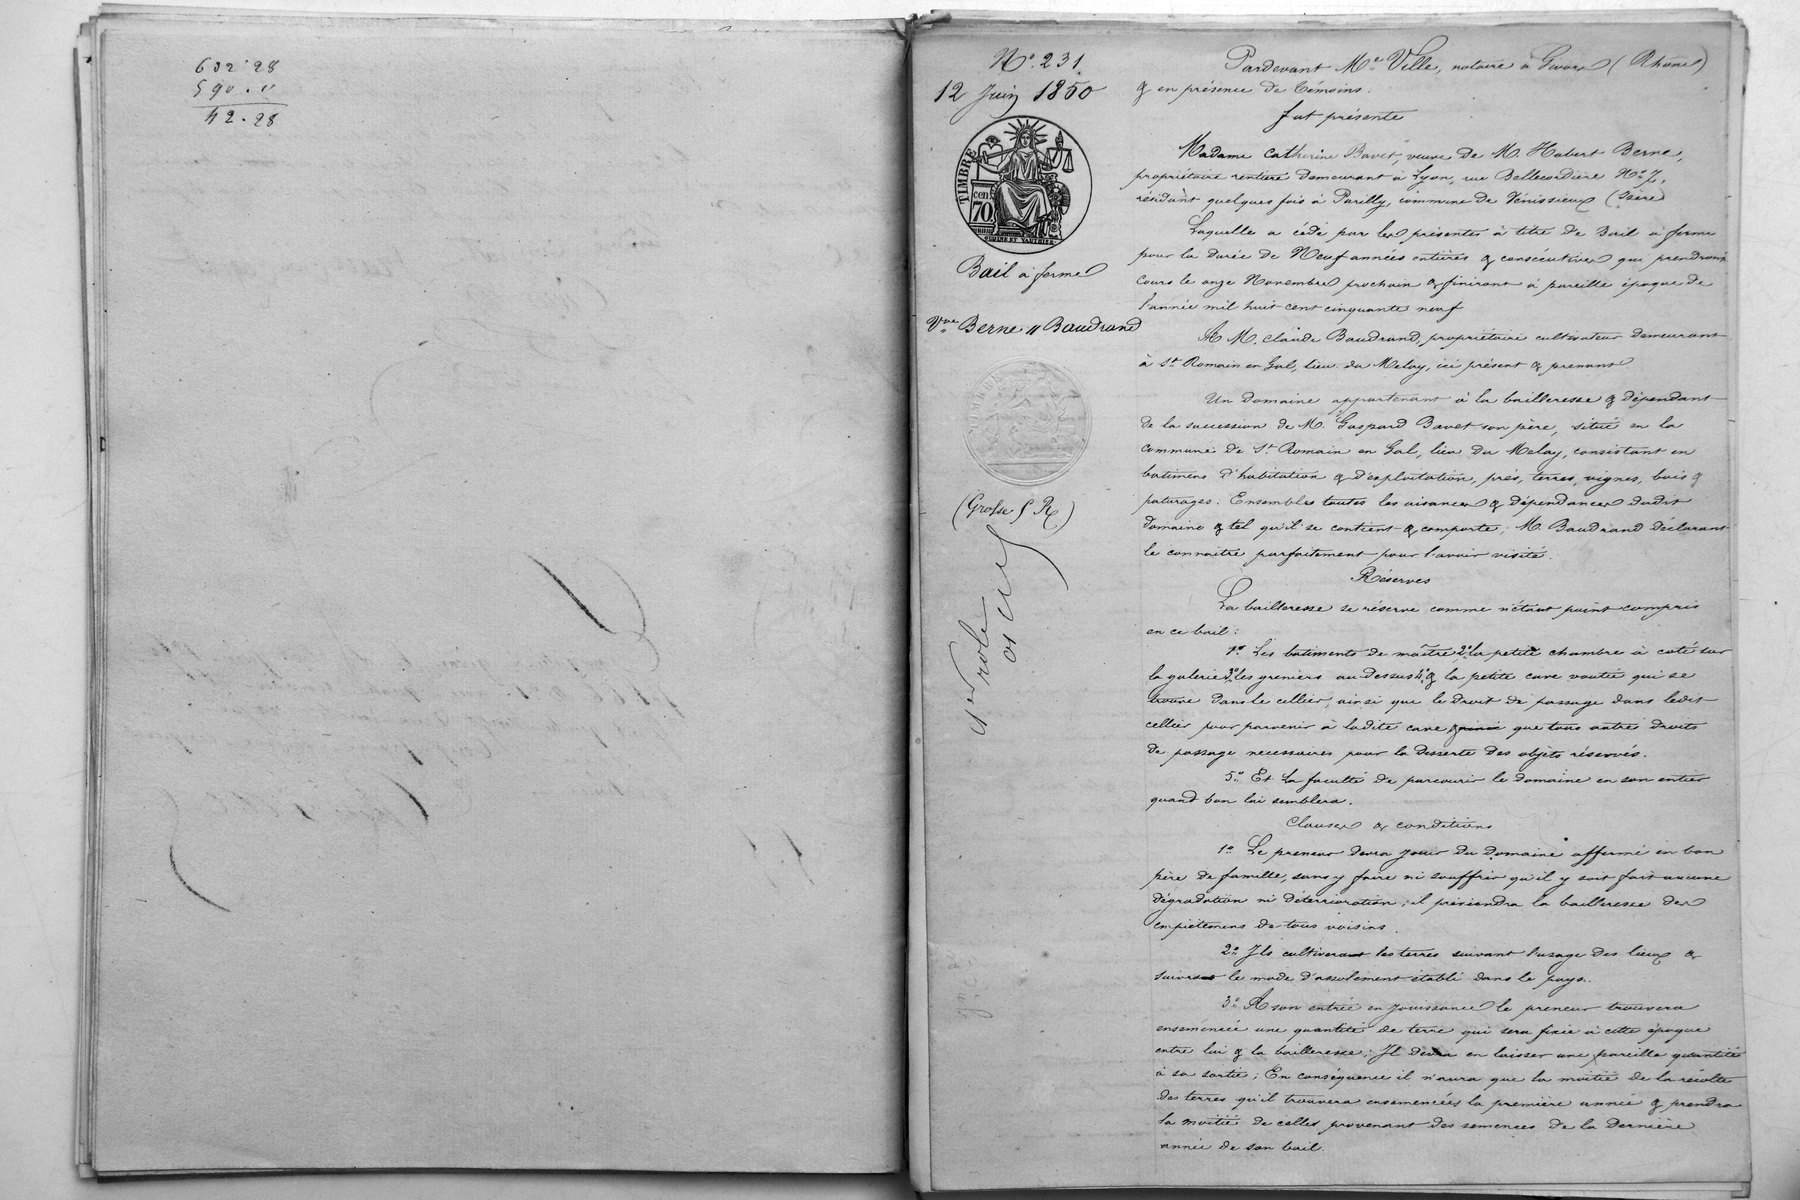 632.28
590."
42.28
No. 231
12 Juin 1850
TIMBRE
cen.
70
Bail à ferme
Vve Berne // Baudrand
(Grosse f R)
1er rôle
Pardevant Me Ville, notaire à Givors (Rhône)
& en présence de témoins.
fut présente
Madame Catherine Bavet, veuve de M. Hubert Berne,
propriétaire rentière demeurant à Lyon, rue Bellecordière No 7,
résidant quelques fois à Parilly, commune de Vénissieux (Isère)
Laquelle a cédé par les présentes à titre de Bail à ferme
pour la durée de Neuf années entières & consécutives qui prendront
cours le onze Novembre prochain & finiront à pareille époque de
l'année mil huit cent cinquante neuf
A M. Claude Baudrand, propriétaire cultivateur demeurant
à St. Romain en Gal, lieu du Melay, ici présent & prenant
Un domaine appartenant à la bailleresse & dépendant
de la succession de M. Gaspard Bavet son père, situé en la
commune de St. Romain en Gal, lieu du Melay, consistant en
batimens d'habitation & d'exploitation, prés, terres, vignes, bois &
paturages. Ensembles toutes les aisances & dépendances dudit
domaine & tel qu'il se contient & comporte; M. Baudrand déclarant
le connaitre parfaitement pour l'avoir visité.
Réserves
La bailleresse se réserve comme n'étant point compris
en ce bail:
1o Les batiments de maître 2o la petite chambre à coté sur
la galerie 3o les greniers au dessus 4o & la petite cave voutée qui se
trouve dans le cellier, ainsi que le droit de passage dans ledit
cellier pour parvenir à ladite cave & ainsi que tous autre droits
de passage necessaires pour la desserte des objets réservés.
5o Et la faculté de parcourir le domaine en son entier
quand bon lui semblera.
Clauses & conditions
1o Le preneur devra jouir du domaine affermé en bon
père de famille, sans y faire ni souffrir qu'il y soit fait aucune
dégradation ni détérioration; il préviendra la bailleresse des
empietemens de tous voisins.
2o Ils cultiveront les terres suivant l'usage des lieux &
suivront le mode d'assolement établi dans le pays.
3o A son entrée en jouissance le preneur trouvera
ensemencée une quantité de terre qui sera fixée à cette époque
entre lui & la bailleresse; Il devra en laisser une pareille quantité
à sa sortie; En conséquence il n'aura que la moitié de la récolte
des terres qu'il trouvera ensemencées la première année & prendra
la moitié de celles provenant des semences de la dernière
année de son bail.